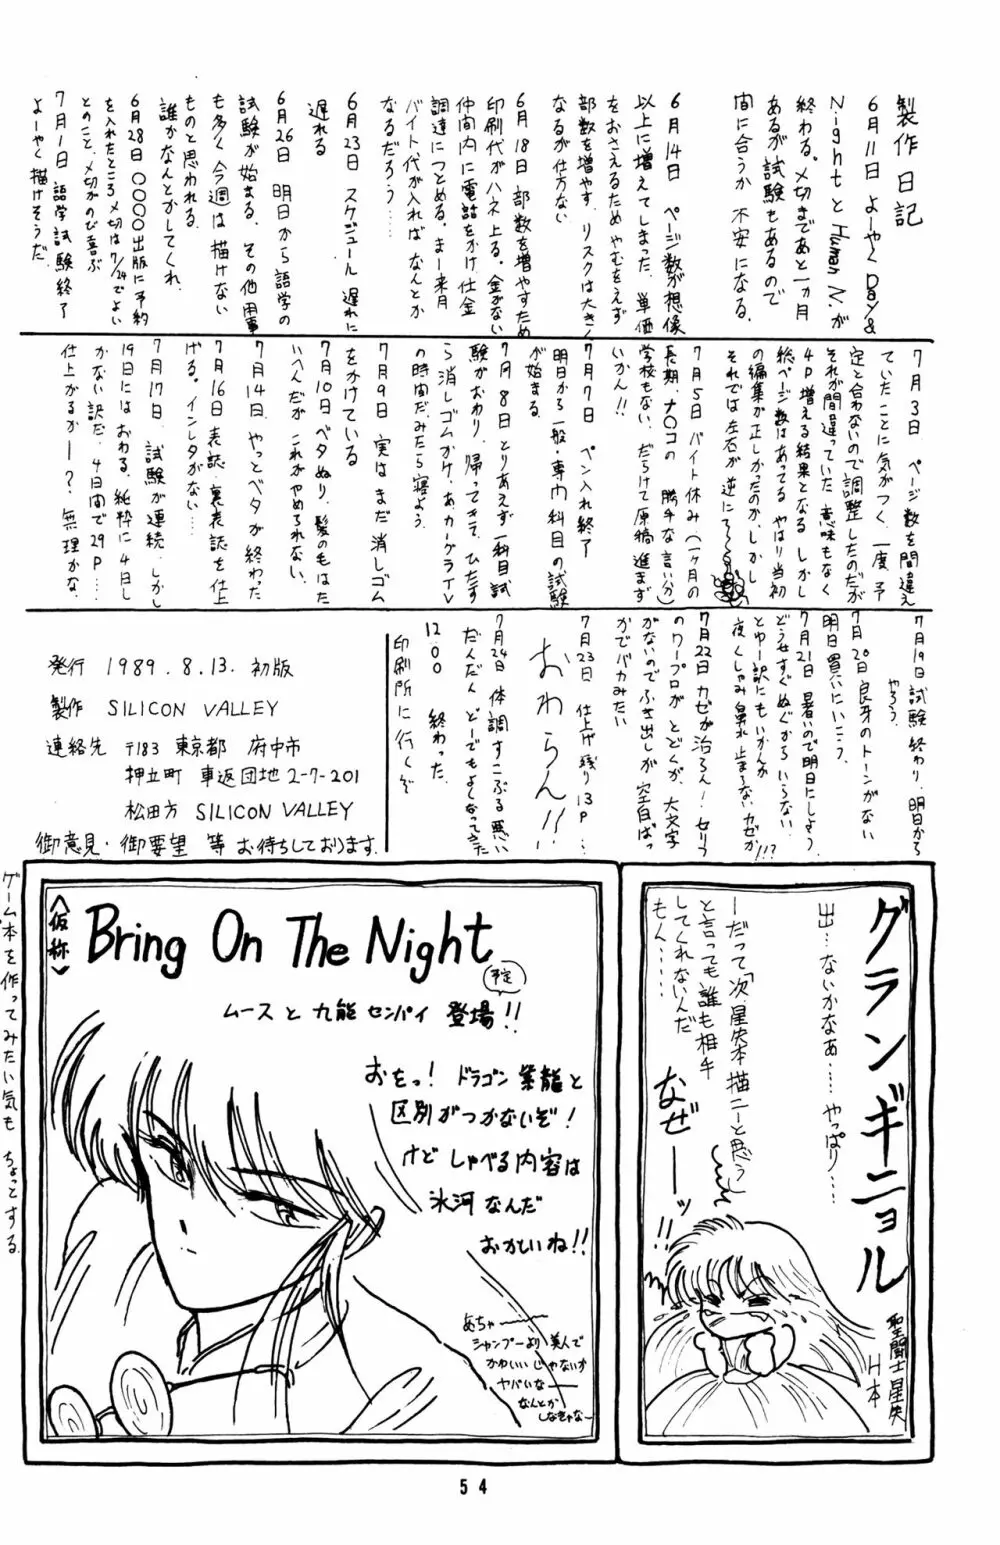 製作日記
6月11日 よーやく Day&
Night と Human N. が
終わる。〆切まであと一ヵ月
あるが試験もあるので
間に合うか 不安になる。
6月14日 ページ数が想像
以上に増えてしまった。単価
をおさえるため やむをえず
部数を増やす。リスクは大きく
なるが仕方ない
6月18日 部数を増やすため
印刷代がハネ上る。金がない
仲間内に電話をかけ、仕金
調達につとめる。まー来月
バイト代が入れば なんとか
なるだろう…
6月23日 スケジュール 遅れに
遅れる
6月26日 明日から語学の
試験が始まる。その他用事
も多く 今週は描けない
ものと思われる。
誰かなんとかしてくれ
6月28日 〇〇〇〇出版に予約
を入れたところ〆切は7/24でよい
とのこと、〆切がのび喜ぶ
7月1日 語学試験終了
よーやく描けそうだ。
7月3日 ページ数を間違え
ていたことに気がつく。一度 予
定と合わないので調整したのだが
それが間違っていた 意味もなく
4P増える結果となる しかし
総ページ数はあってる やはり当初
の編集が正しかったのか、しかし
それでは左右が逆に〜
7月5日 バイト休み(一ヶ月の
長期、ナ〇コの 勝手な言い分)
学校もない、だらけて原稿 進まず
いかん!!
7月7日 ペン入れ終了
明日から一般・専門科目の試験
が始まる。
7月8日 とりあえず一科目試
験がおわり、帰ってきて、ひたす
ら消しゴムかけ、あ、カーグラTV
の時間だ、みたら寝よう。
7月9日 実はまだ消しゴム
をかけている
7月10日 ベタぬり、髪の毛はた
いへんだが これがやめられない。
7月14日 やっとベタが終わった
7月16日 表誌・裏表誌を仕上
げる。インレタがない…
7月17日、試験が連続、しかし
19日にはおわる。純粋に4日し
かない訳だ、4日間で29P……
仕上がるかー?無理かな。
7月19日 試験終わり、明日から
やろう。
7月20日 良牙のトーンがない
明日買いにいこう。
7月21日 暑いので明日にしよう
どうせすぐぬぐからいらない
とゆー訳にもいかんか
夜くしゃみ鼻水止まらないカゼか!!?
7月22日 カゼが治らん!セリフ
のワープロが とどくが、大文字
がないのでふき出しが空白ばっ
かでバカみたい
7月23日 仕上げ残り13P…
おわらん!!
7月24日 体調すこぶる悪い
だんだん どーでもよくなってきた
12:00 終わった。
印刷所に行くぞ
発行 1989.8.13. 初版
製作 SILICON VALLEY
連絡先 〒183 東京都 府中市
押立町 車返団地2-7-201
松田方 SILICON VALLEY
御意見・御要望 等 お待ちしております。
ゲーム本を作ってみたい気も ちょっとする。
グランギニョル
聖闘士星矢
H本
出…ないかなぁ……やっぱり……
―だって「次、星矢本描こーと思う」
と言っても誰も相手
してくれないんだ
もん……
なぜーッ!!
〈仮称〉
Bring On The Night
予定
ムースと九能センパイ 登場!!
おをっ! ドラゴン紫龍と
区別がつかないぞ!
けどしゃべる内容は
氷河なんだ
おかしいね!!
あちゃー
シャンプーより美人で
かわいいじゃないか
ヤバいなー
なんとか
しなきゃなー
54